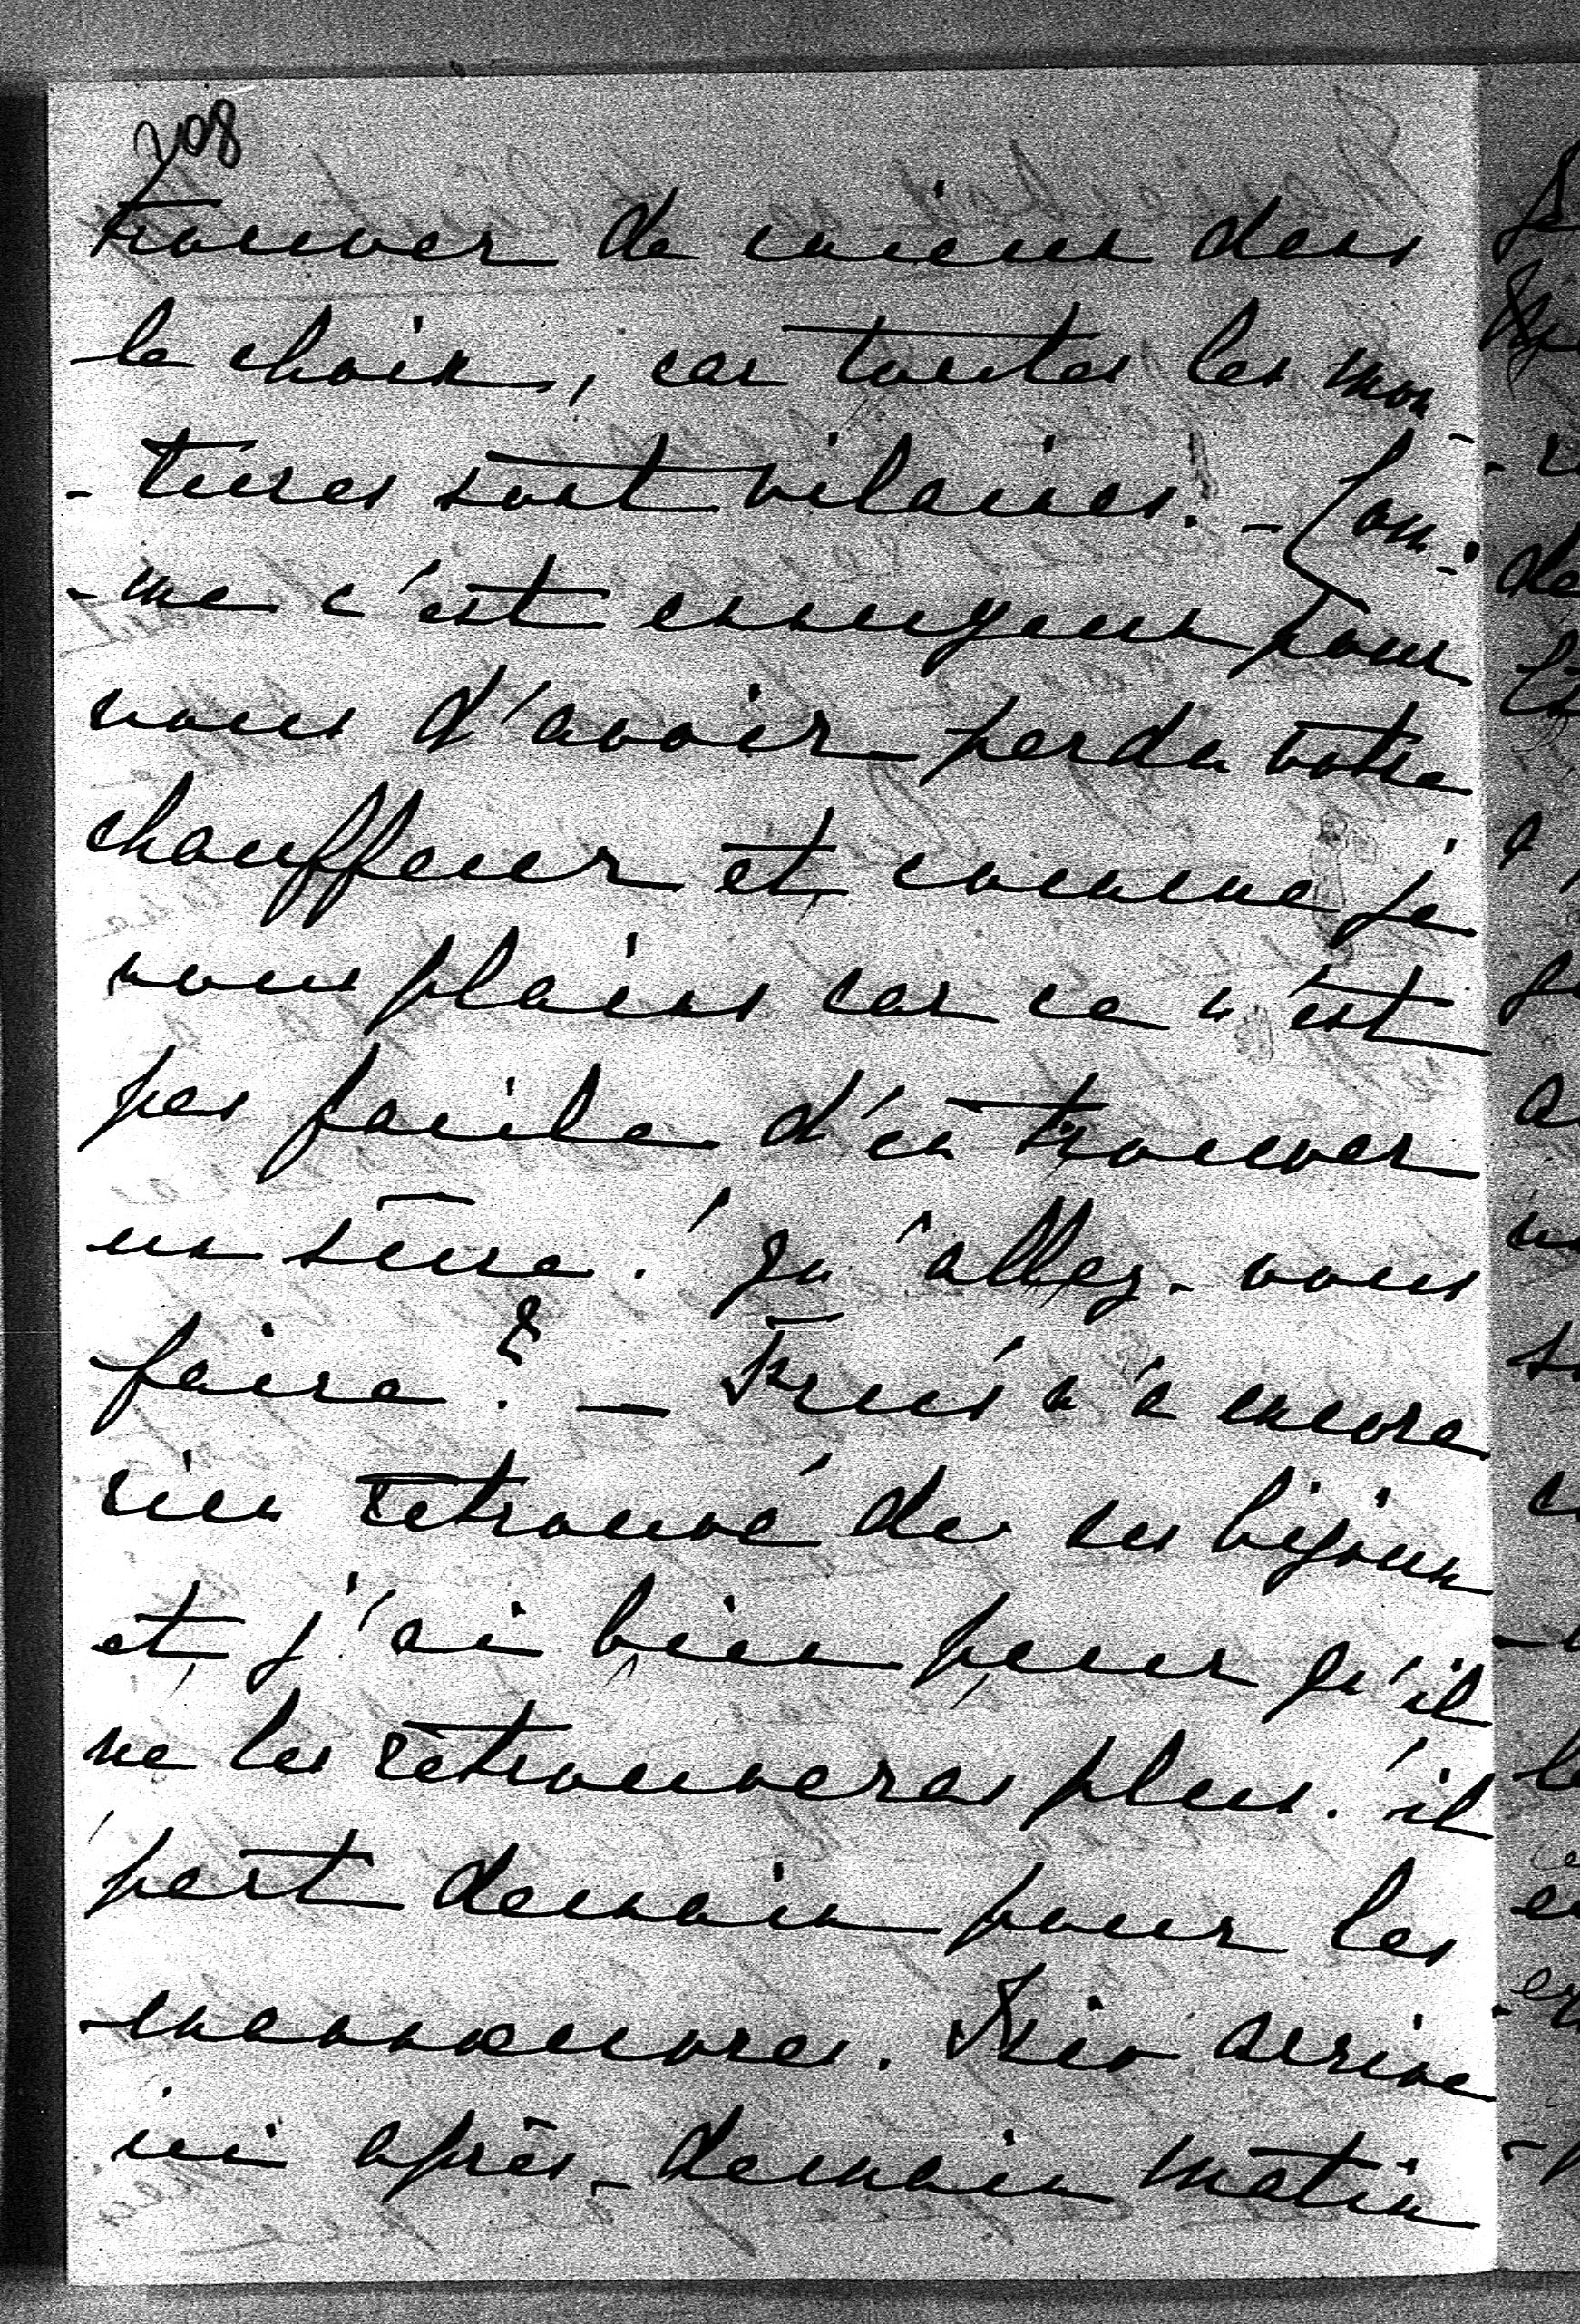 208
trouver de mieux dans
le choix, car toutes les mon-
-tures sont vilaines. - Com-
-me c'est ennuyeux pour
vous d'avoir perdu votre
chauffeur et comme je
vous plains car ce n'est
pas facile d'en trouver
un sûre. Qu'allez-vous
faire? - n'a encore
rien retrouvé de ses bijoux
et j'ai bien peur qu'il
ne les retrouveras plus. il
part demain pour les
manoeuvres. arrive
ici après-demain matin